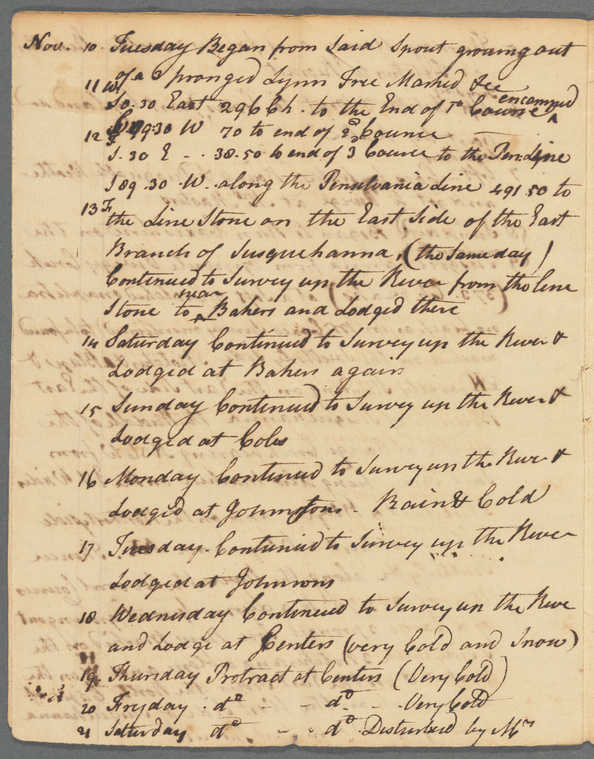 Nov. 10 Tuesday Began from Said Spout growing out
of a 3 pronged Lynn Tree Marked &ce
11 W S 0.30 East 296 Ch. to the End of 1st Course encamped
12 T S 89.30 W 70 to end of 2d Course
S. 30 E - - 38.50 to end of 3 Course to the Pen Line
S 89.30 W. along the Pensilvania Line 491.50 to
13 Fr the Line Stone on the East Side of the East
Branch of Susquehanna, (the Same day)
Continued to Survey up the River (from the Line
Stone to near Bakers and Lodged there
14 Saturday Continued to Survey up the River &
Lodged at Bakers again
15 Sunday Continued to Survey up the River &
Lodged at Coles
16 Monday Continued to Survey up the River &
Lodged at Johnstons - Rain & Cold
17 Tuesday. Continued to Survey up the River
Lodged at Johnsons
18. Wednesday Continued to Survey up the River
and Lodge at Centers (very Cold and Snow)
19. Thursday Protract at Centers (Very Cold)
20 Fryday. do - - do. - Very Cold
21 Saturday do - - do Disturbed by Mr